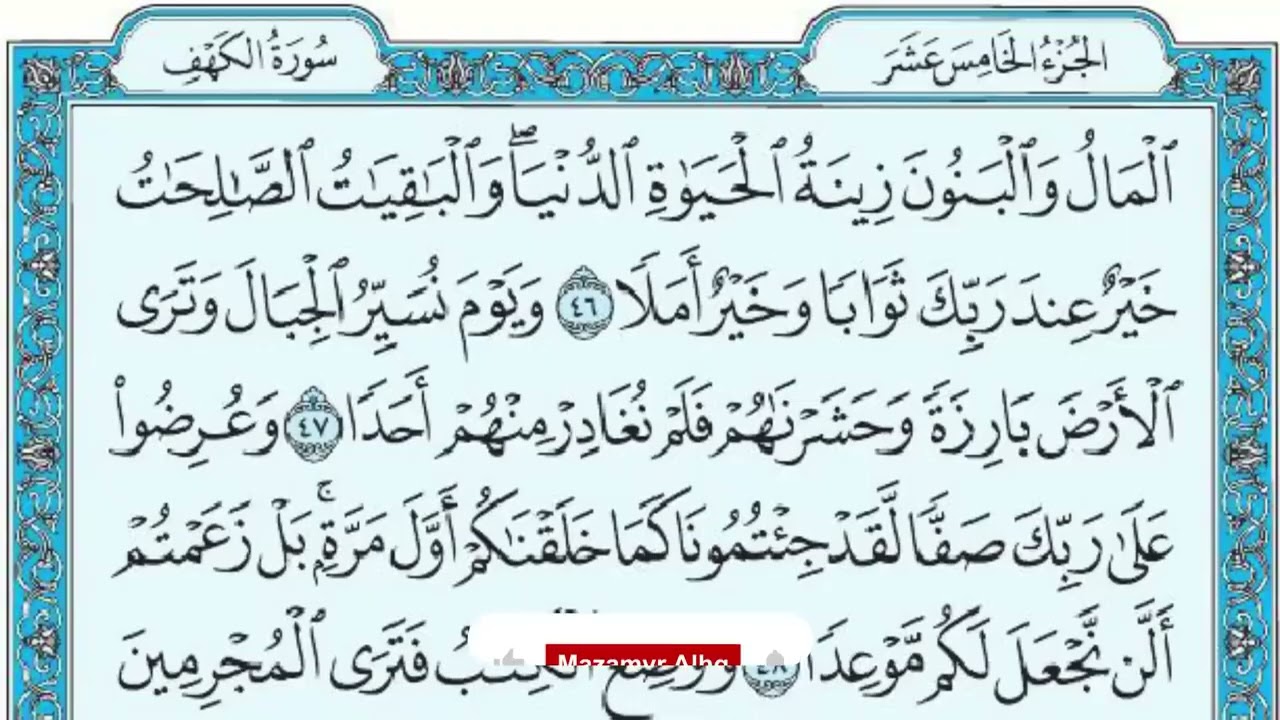 الجُزْءُ الخَامِسَ عَشَرَ
سُورَةُ الكَهْفِ
ٱلْمَالُ وَٱلْبَنُونَ زِينَةُ ٱلْحَيَوٰةِ ٱلدُّنْيَاۖ وَٱلْبَٰقِيَٰتُ ٱلصَّٰلِحَٰتُ
خَيْرٌ عِندَ رَبِّكَ ثَوَابًا وَخَيْرٌ أَمَلًا ٤٦ وَيَوْمَ نُسَيِّرُ ٱلْجِبَالَ وَتَرَى
ٱلْأَرْضَ بَارِزَةً وَحَشَرْنَٰهُمْ فَلَمْ نُغَادِرْ مِنْهُمْ أَحَدًا ٤٧ وَعُرِضُوا۟
عَلَىٰ رَبِّكَ صَفًّا لَّقَدْ جِئْتُمُونَا كَمَا خَلَقْنَٰكُمْ أَوَّلَ مَرَّةٍۚ بَلْ زَعَمْتُمْ
أَلَّن نَّجْعَلَ لَكُم مَّوْعِدًا ٤٨ فَتَرَى ٱلْمُجْرِمِينَ
Mazamyr Albg